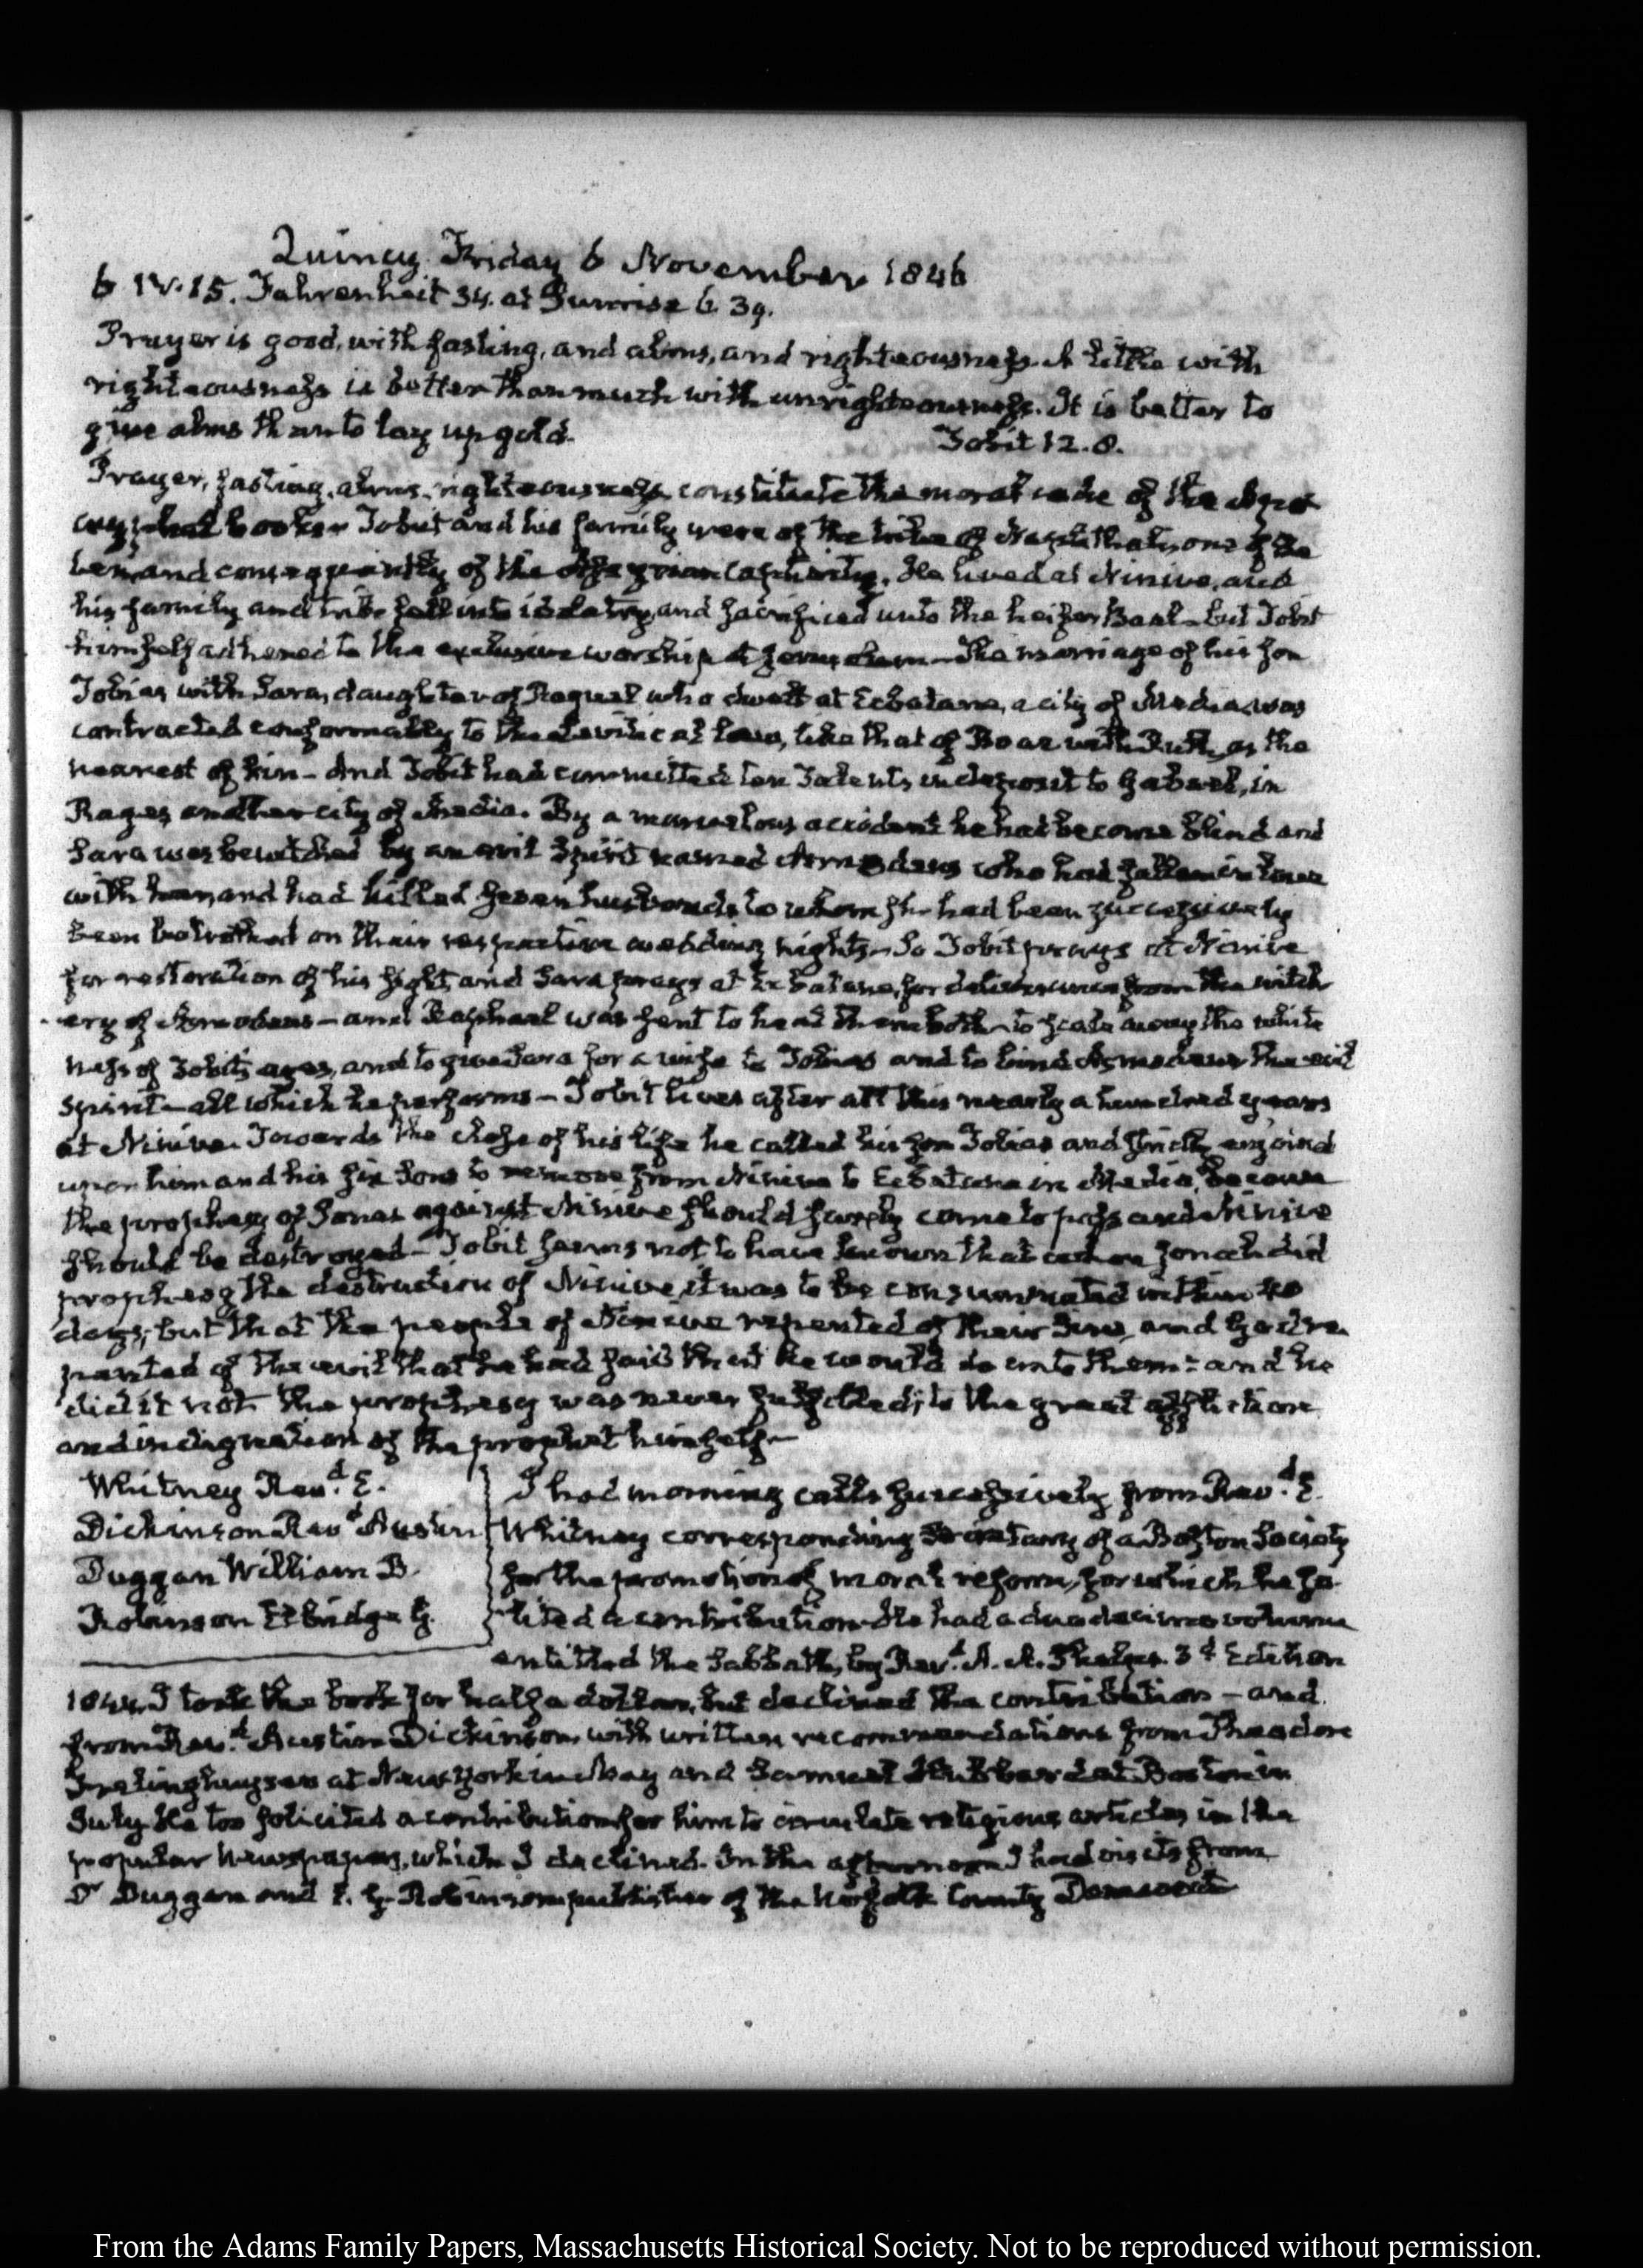 Quincy Friday 6 November 1846
6 IV.15. Fahrenheit 34. at Sunrise 6.39.
Prayer is good, with fasting, and alms, and righteousness. A little with
righteousness is better than much with unrighteousness. It is better to
give alms than to lay up gold. Tobit 12.8.
Prayer, fasting, alms, righteousness, constitute the moral code of the Apo-
cryphal books. Tobit and his family were of the tribe of Naphthali, one of the
ten, and consequently of the Assyrian Captivity. He lived at Ninive, and
his family and tribe fell into idolatry, and sacrificed unto the heifer Baal_ but Tobit
himself adhered to the exclusive worship at Jerusalem_ The marriage of his son
Tobias with Sara, daughter of Raguel who dwelt at Ecbatane, a city of Media, was
contracted conformably to the Levitical law, like that of Boaz with Ruth, as the
nearest of kin_ And Tobit had committed ten Talents in deposit to Gabael, in
Rages another city of Media. By a marvellous accident he had become blind and
Sara was bewitched by an evil Spirit named Asmodeus who had fallen in love
with her, and had killed seven husbands to whom she had been successively
been betrothed on their respective wedding nights_ So Tobit prays at Ninive
for restoration of his sight, and Sara prays at Ecbatane, for deliverance from the witch
ery of Asmodeus_ and Raphael was sent to heal them both_ to scale away the white
ness of Tobit's eyes, and to give Sara for a wife to Tobias and to bind Asmodeus the evil
spirit_ all which he performs_ Tobit lives after all this nearly a hundred years
at Ninive. Towards the close of his life he called his son Tobias and strictly enjoind
upon him and his six sons to remove from Ninive to Ecbatane in Media, because
the prophesy of Jonas against Ninive should surely come to pass and Ninive
should be destroyed_ Tobit seems not to have known that when Jonah did
prophesy the destruction of Ninive, it was to be consummated within 40
days; but that the people of Ninive repented of their Sins, and God re-
pented of the evil that he had said that he would do unto them: and he
did it not. The prophesy was never fulfilled; to the great affliction
and indignation of the prophet himself_
Whitney Revd. E.
Dickinson Revd Austin
Duggan William B.
Robinson Elbridge G.
I had morning calls successively from Revd. E.
Whitney corresponding Secretary of a Boston Society
for the promotion of moral reform, for which he so-
licited a contribution. He had a duodecimo volume
entitled the Sabbath, by Revd. A. A. Phelps. 3d Edition
1844. I took the book for half a dollar, but declined the contribution_ and
from Revd. Austin Dickinson, with written recommendations from Theodore
Frelinghuysen at New York in May and Samuel Hubbard at Boston in
July. He too solicited a contribution for him to circulate religious articles in the
popular Newspapers, which I declined. In the afternoon I had visits from
Dr Duggan and E. G. Robinson publisher of the Norfolk County Democrat
From the Adams Family Papers, Massachusetts Historical Society. Not to be reproduced without permission.